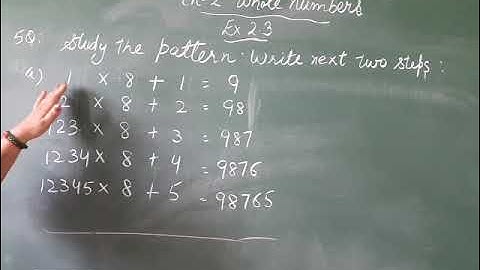 Ch-2 Whole Numbers
Ex 2.3
5Q: Study the pattern. Write next two steps:
a) 1 × 8 + 1 = 9
2 × 8 + 2 = 98
123 × 8 + 3 = 987
1234 × 8 + 4 = 9876
12345 × 8 + 5 = 98765